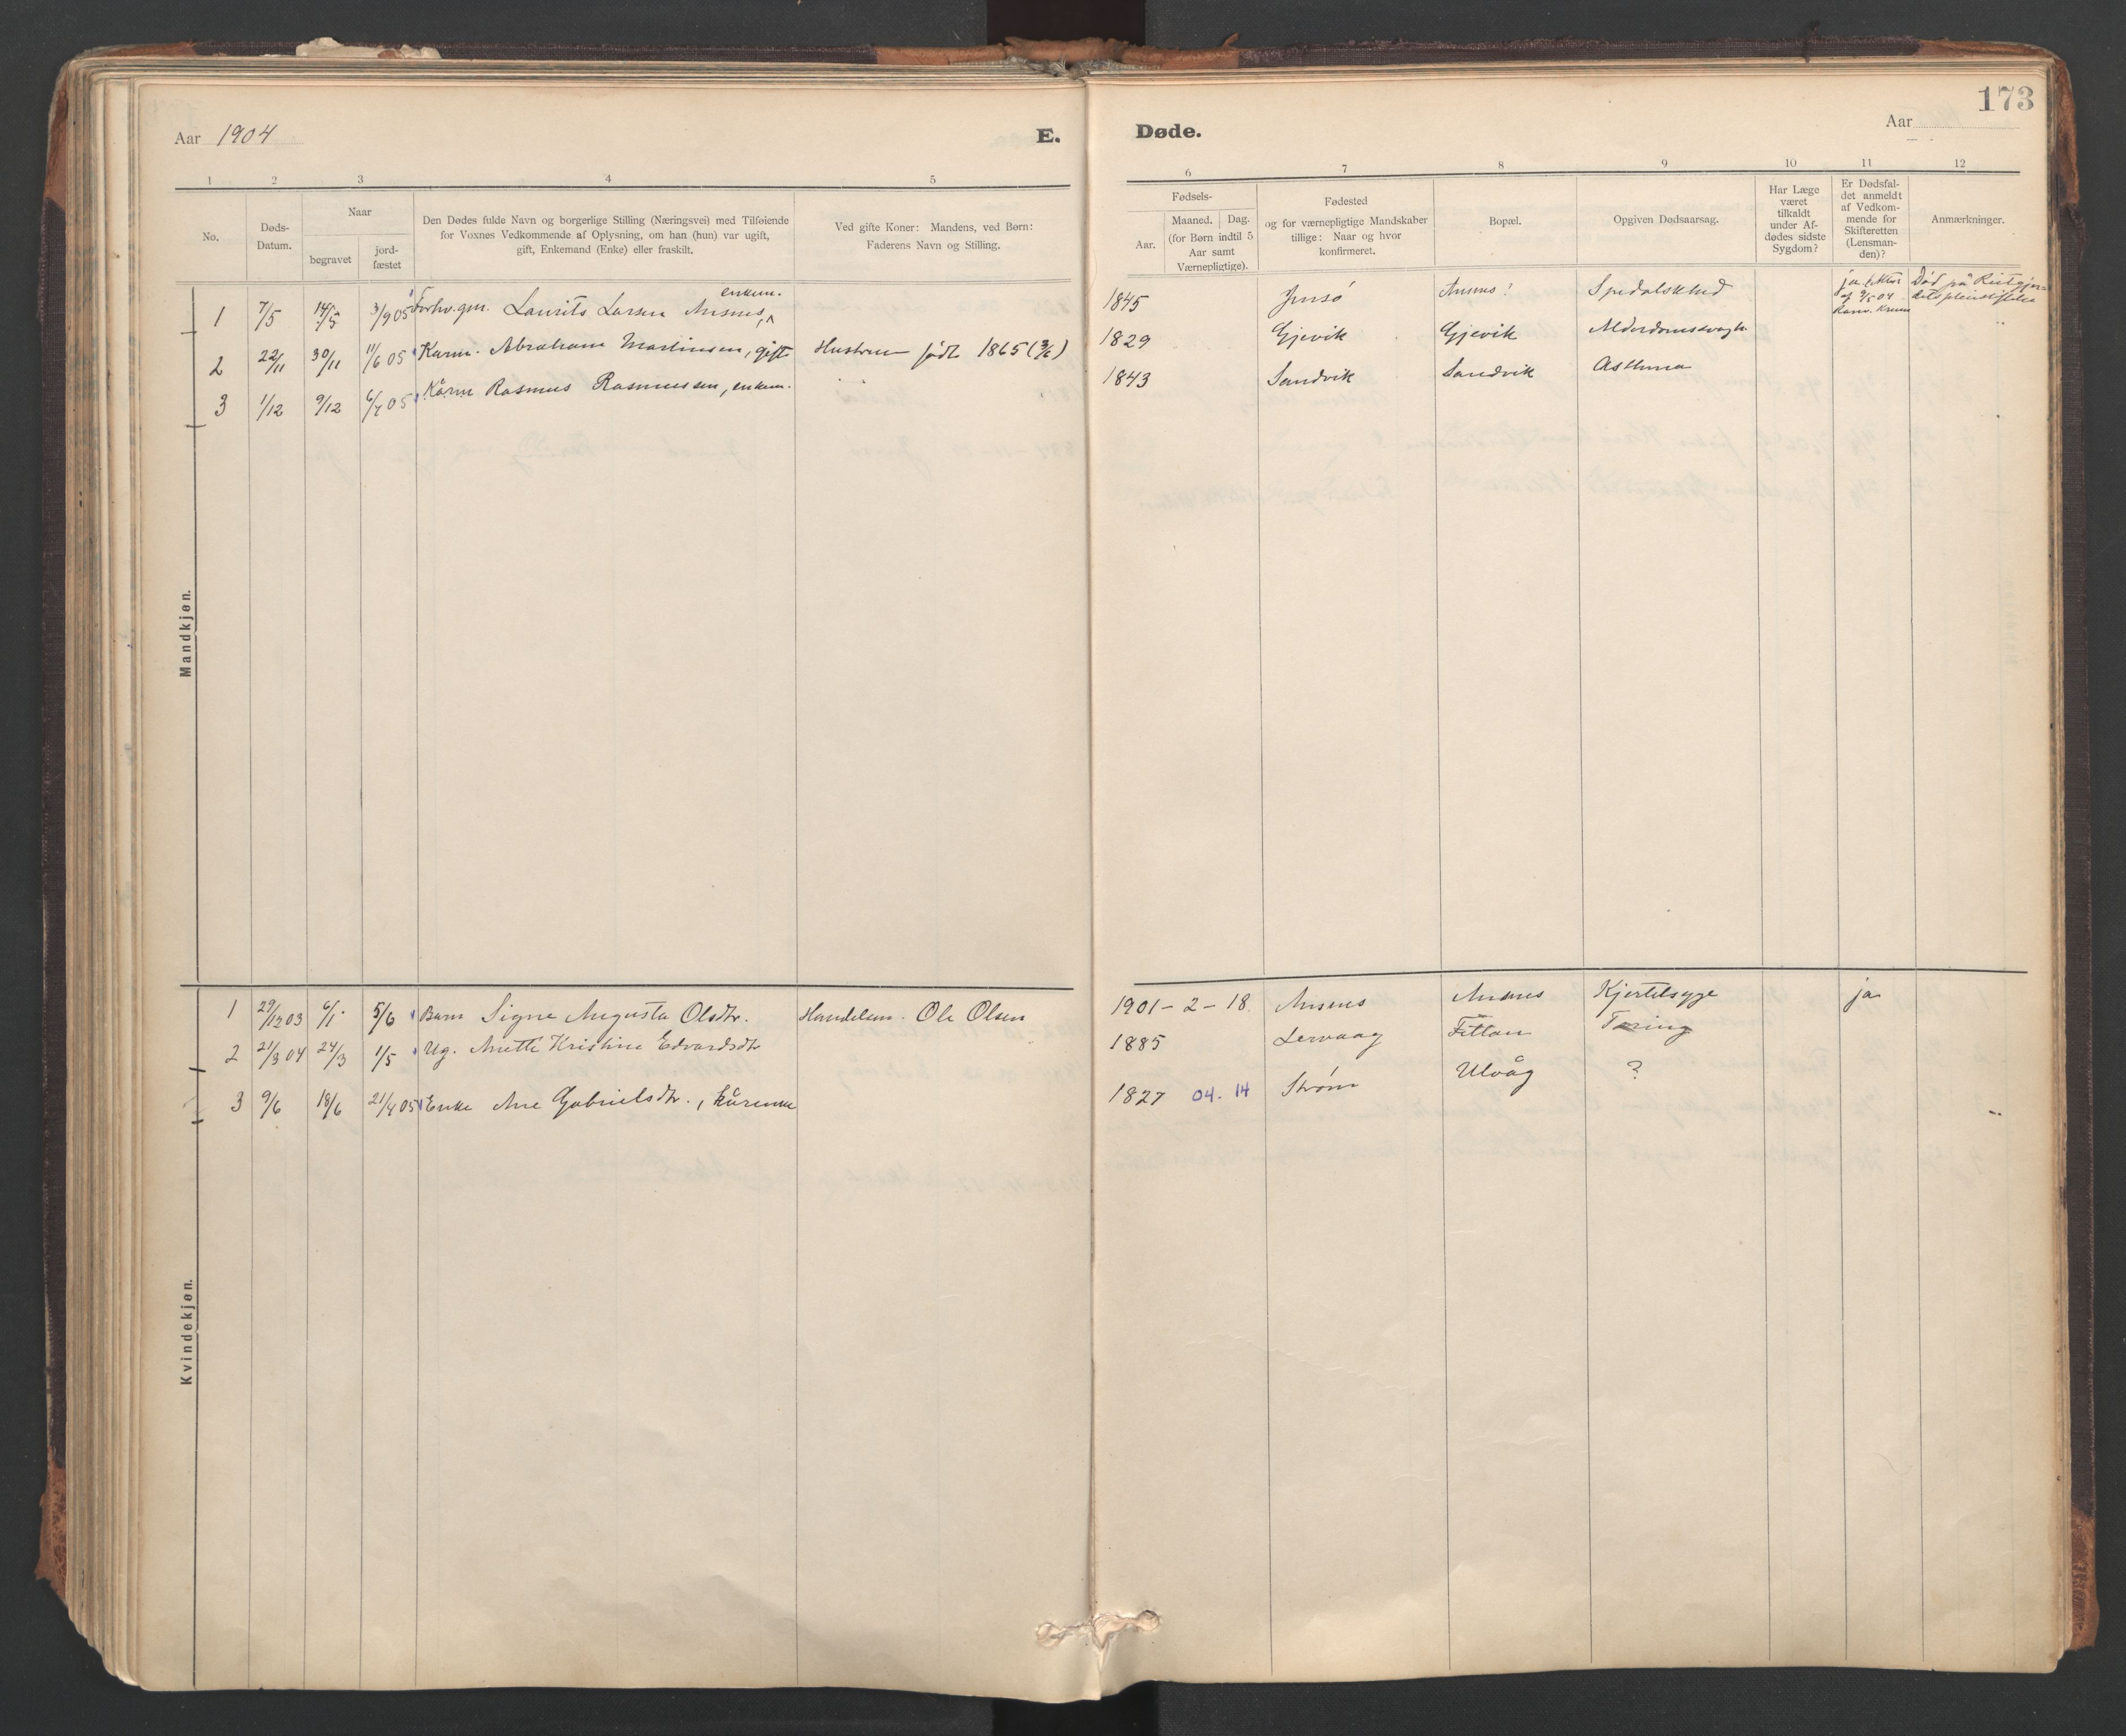 173
Aar 1904 E. Døde. Aar
1 2 3 4 5 6 7 8 9 10 11 12
No.
Døds-
Datum.
Naar
begravet
jord-
fæstet
Den Dødes fulde Navn og borgerlige Stilling (Næringsvei) med Tilføiende
for Voxnes Vedkommende af Oplysning, om han (hun) var ugift,
gift, Enkemand (Enke) eller fraskilt.
Ved gifte Koner: Mandens, ved Børn:
Faderens Navn og Stilling.
Fødsels-
Aar.
Maaned. Dag.
(for Børn indtil 5
Aar samt
Værnepligtige).
Fødested
og for værnepligtige Mandskaber
tillige: Naar og hvor
konfirmeret.
Bopæl.
Opgiven Dødsaarsag.
Har Læge
været
tilkaldt
under Af-
dødes sidste
Sygdom?
Er Dødsfal-
det anmeldt
af Vedkom-
mende for
Skifteretten
(Lensman-
den)?
Anmærkninger.
Mandkjøn.
enkem.
1 7/5 14/5 3/9 05 Forhv. gm. Laurits Larsen Ansnes, 1845 Jnsø Ansnes! Spedalskhed ja Død på
2 22/11 30/11 11/6 05 Kårm. Abraham Martinsen, gift Hustru født 1865 (3/6) 1829 Gjevik Gjevik Alderdomssvagh.
3 1/12 9/12 6/4 05 Kårm Rasmus Rasmussen, enkem. 1843 Sandvik Sandvik Asthma
Kvindekjøn.
1 29/12 03 6/1 5/6 Barn Signe Augusta Olsdtr. Handelsm. Ole Olsen 1901-2-18. Ansnes Ansnes Kjertelsyge ja
2 21/3 04 24/3 1/5 Ug. Anette Kristine Edvardsdtr 1885 Lervaag Fittan Tæring
3 9/6 18/6 21/4 05 Enke Ane Gabrielsdtr., kårenke 1827 04. 14 Strøm Ulvåg ?